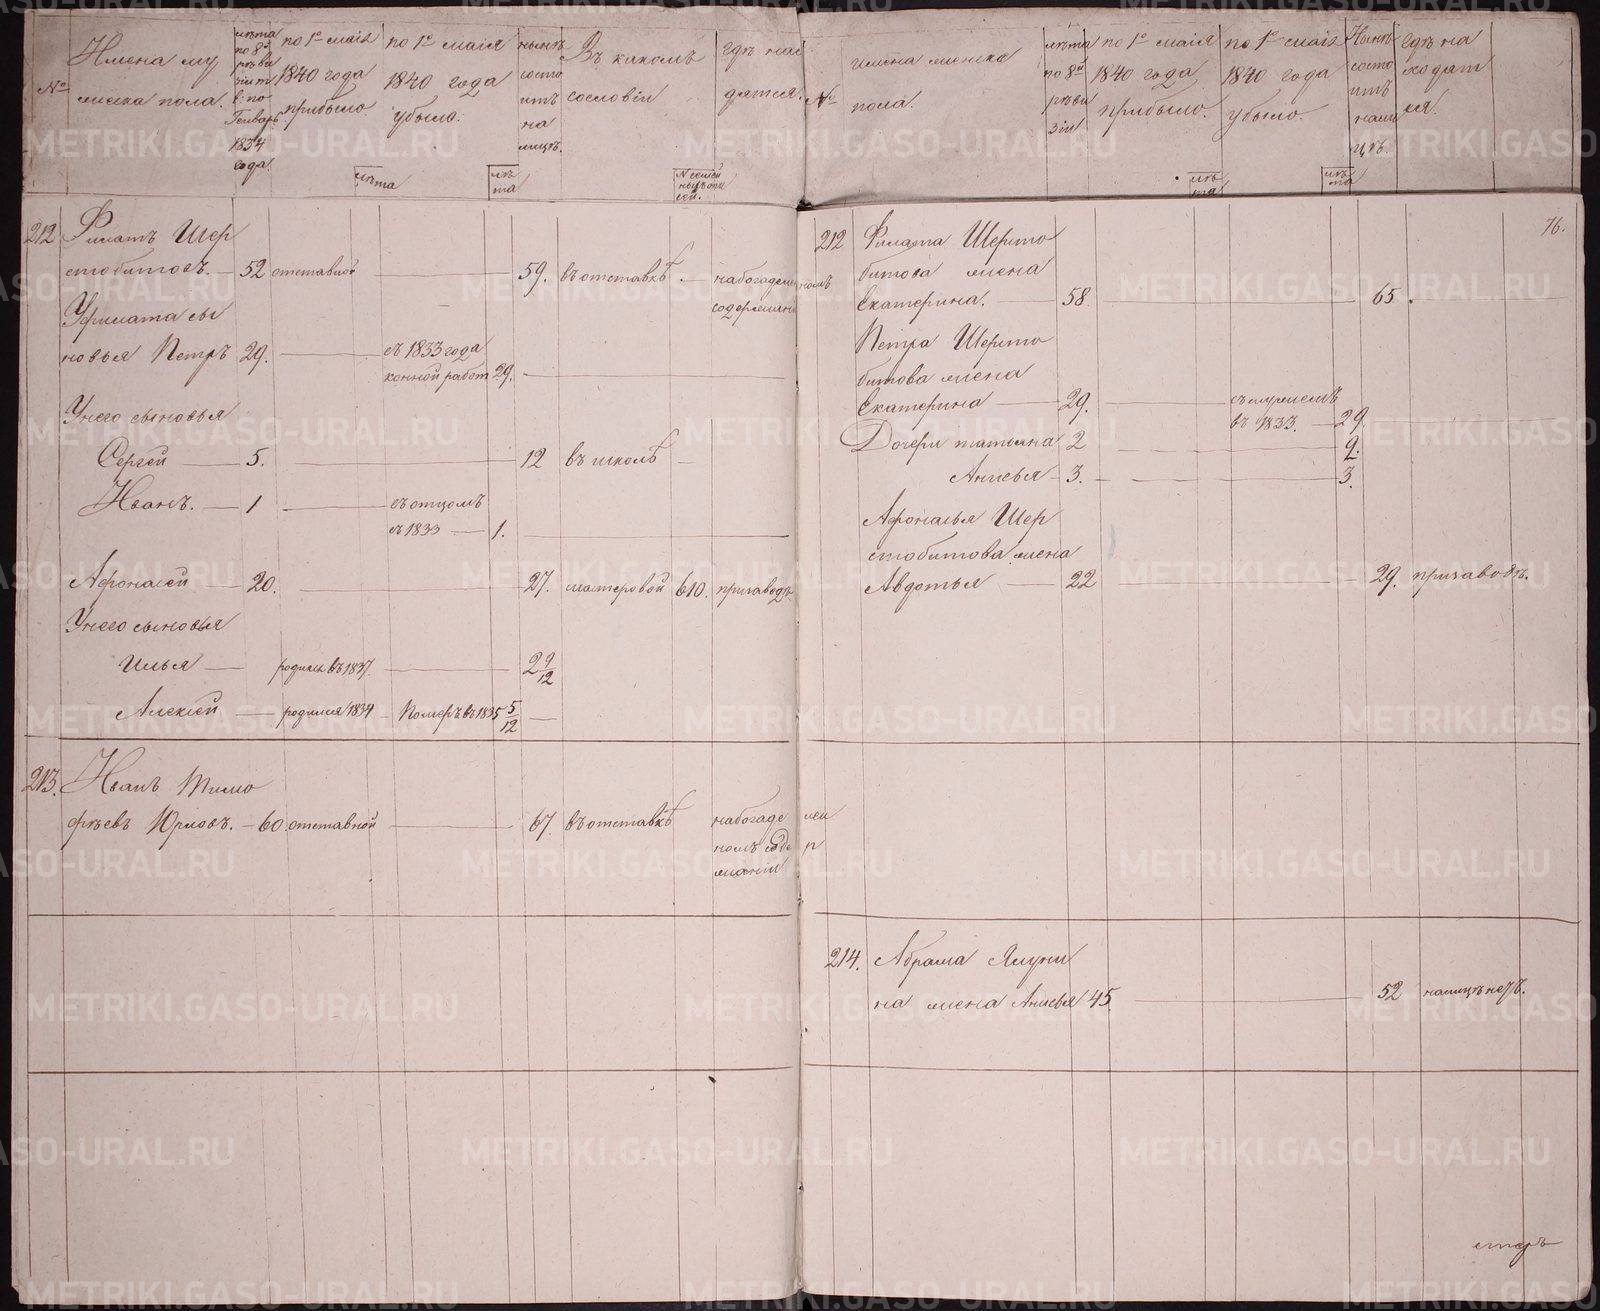 №
Имена му
жеска пола.
лѣта
по 8й
реви
зіи т.
е: по
Генварь
1834
года.
по 1е маія
1840 года
прибыло.
лѣта
по 1е маія
1840 года
убыло.
лѣ
та
нынѣ
состо
итъ
на
лицѣ.
Въ какомъ
сословіи
№ семей
ныхъ спи
сей.
гдѣ нах
дятся.
212 Филатъ Шер
стобитовъ. — 52 отставной — 59. въ отставкѣ. — на богадельномъ
содержаніи
У Филата сы
новья Петръ 29. — съ 1833 года
конной работ 29.
У него сыновья
Сергей — 5. — 12 въ школѣ —
Иванъ. — 1 — съ отцомъ
съ 1833 — 1.
Афонасей — 20. — 27. мастеровой 610. при заводѣ
У него сыновья
Илья — родился въ 1837. — 2 9/12
Алексей — родился 1834 — Померъ въ 1835 5/12 —
213. Иванъ Тимо
фѣевъ Юрловъ. — 60. отставной — 67. въ отставкѣ на богаде лен
номъ соде р
жаніи
№
имена женска
пола.
лѣта
по 8й
реви
зіи
по 1е маія
1840 года
прибыло.
лѣ
та
по 1е маія
1840 года
убыло.
лѣ
та
Нынѣ
состо
итъ
нали
цѣ.
гдѣ на
ходят
ся.
76.
212 Филата Шерсто
битова жена
Екатерина. — 58. — 65.
Петра Шерсто
битова жена
Екатерина — 29. — съ мужемъ
въ 1833. — 29.
Дочери татьяна 2 — 9.
Анисья — 3. — 3.
Афонасья Шер
стобитова жена
Авдотья — 22 — 29. при заводѣ.
214. Абрама Ягуни
на жена Анисья 45. — 52 налицѣ нетъ.